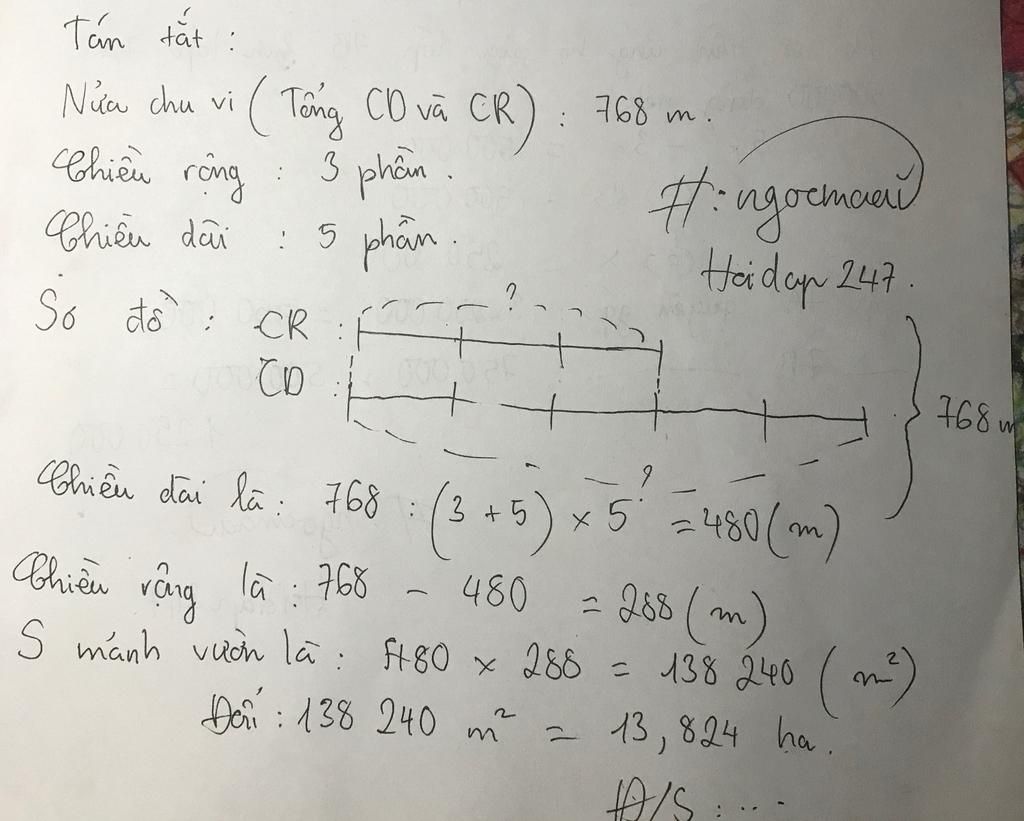 Tấn tắt :
Nửa chu vi ( Tổng CD và CR ) : 768 m .
Chiều rộng : 3 phần .
Chiều dài : 5 phần .
# : ngocmaaii
Hoidap 247 .
Sơ đồ : CR : ?
CD :
768 m
?
Chiều dài là : 768 : ( 3 + 5 ) × 5 = 480 ( m )
Chiều rộng là : 768 - 480 = 288 ( m )
S mảnh vườn là : 480 × 288 = 138 240 ( m² )
Đổi : 138 240 m² = 13 , 824 ha .
Đ/S : ...